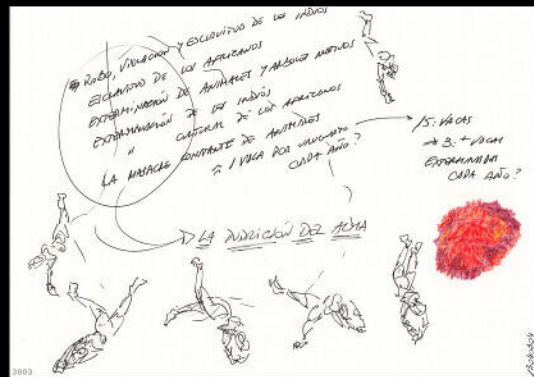 ROBO, VIOLACIÓN Y ESCLAVITUD DE LOS INDIOS
ESCLAVITUD DE LOS AFRICANOS
EXTERMINACIÓN DE ANIMALES Y ARBOLES NATIVOS
EXTERMINACIÓN DE LOS INDIOS
" CULTURAL DE LOS AFRICANOS
LA MASACRE CONSTANTE DE ANIMALES
1 VACA POR URUGUAYO
CADA AÑO?
VACAS
3: + VACAS
EXTERMINADAS
CADA AÑO?
LA PUDRICIÓN DEL ALMA
3003